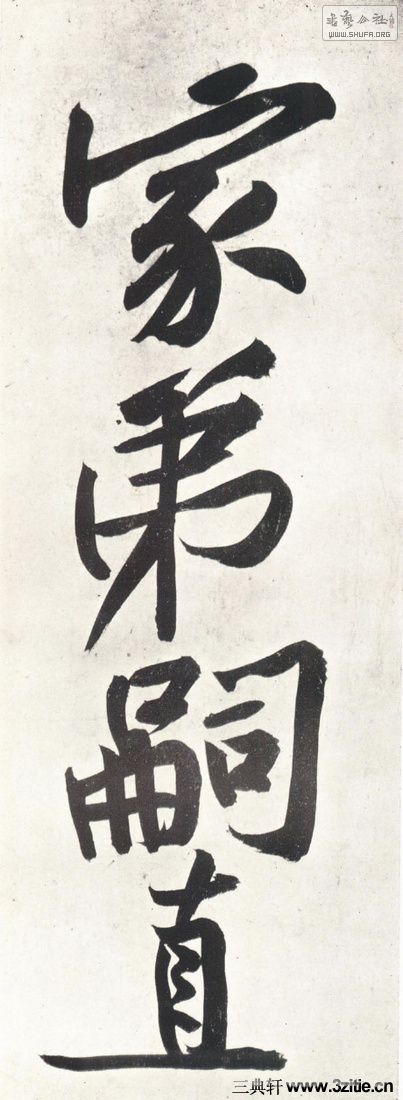 书艺公社
WWW.SHUFA.ORG
家弟嗣直
三典轩 www.3zitie.cn